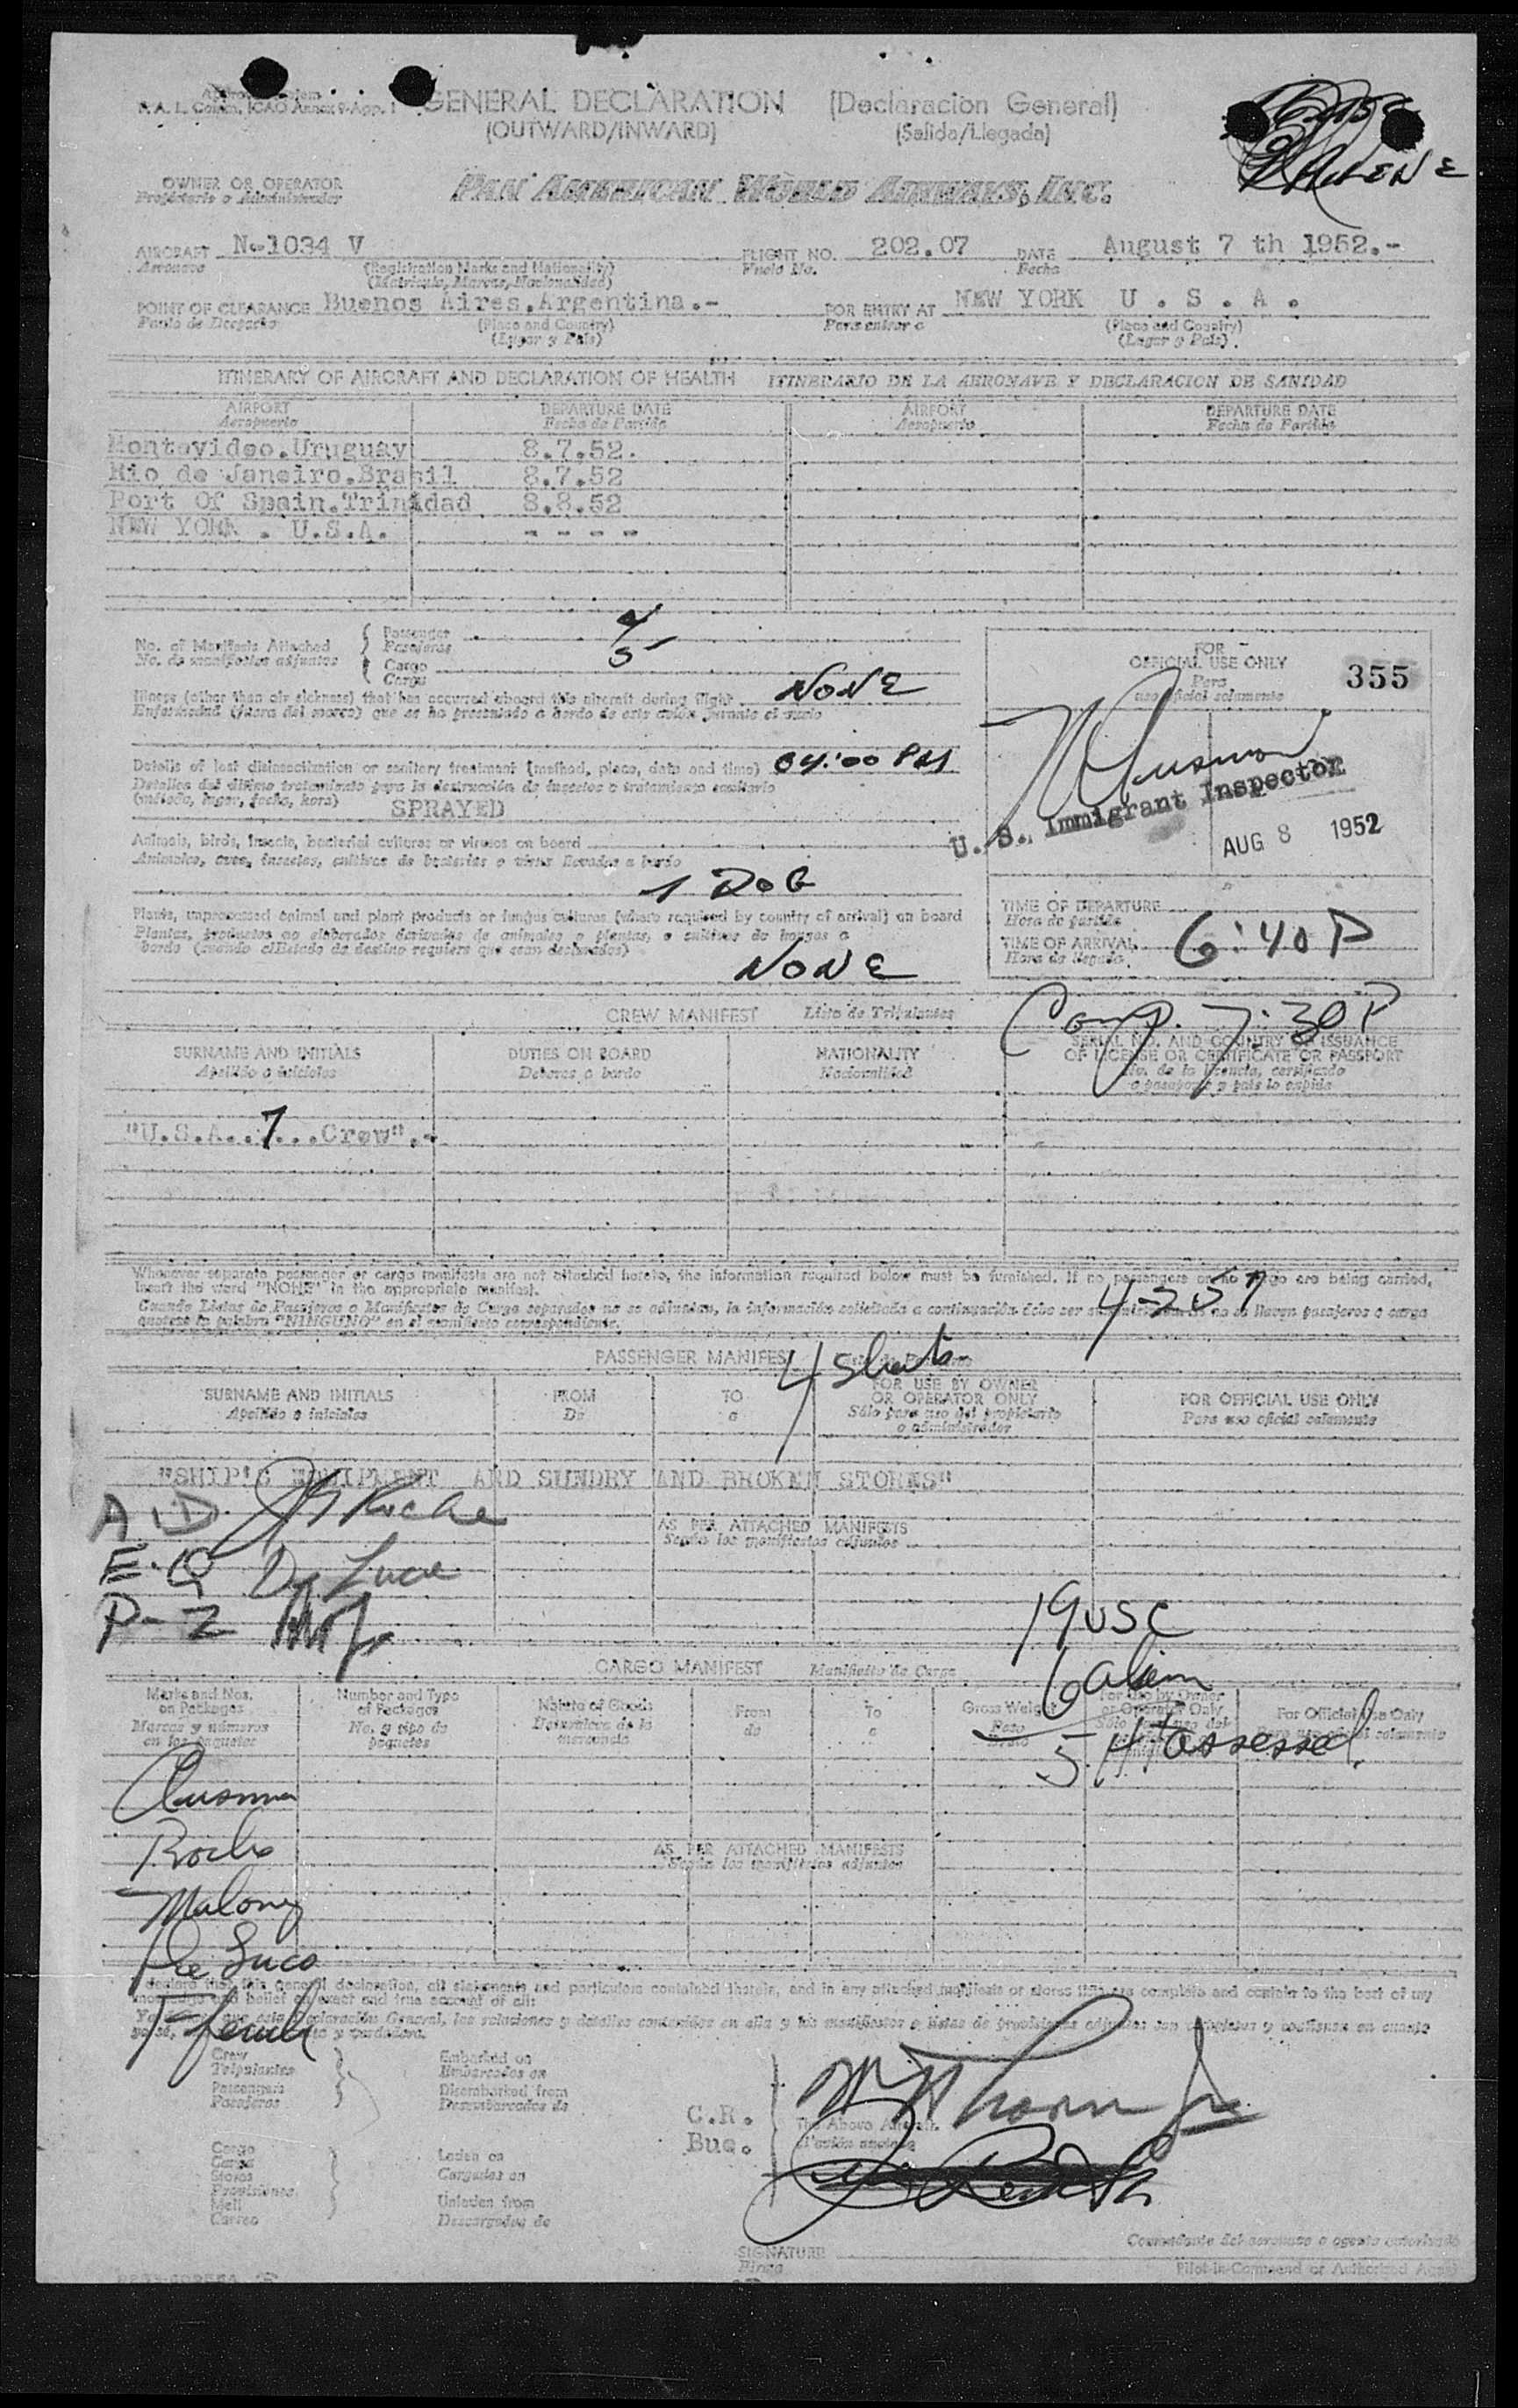 GENERAL DECLARATION (Declaración General)
(OUTWARD/INWARD) (Salida/Llegada)
OWNER OR OPERATOR
Propietario o Administrador
PAN AMERICAN WORLD AIRWAYS, INC.
AIRCRAFT N-1034 V FLIGHT NO. 202.07 DATE August 7 th 1952.-
Aeronave (Registration Marks and Nationality) Vuelo No. Fecha
(Matrícula, Marcas, Nacionalidad)
POINT OF CLEARANCE Buenos Aires.Argentina.- FOR ENTRY AT NEW YORK U . S . A .
Punto de Despacho (Place and Country) Para entrar a (Place and Country)
(Lugar y País) (Lugar y País)
ITINERARY OF AIRCRAFT AND DECLARATION OF HEALTH ITINERARIO DE LA AERONAVE Y DECLARACION DE SANIDAD
AIRPORT DEPARTURE DATE AIRPORT DEPARTURE DATE
Aeropuerto Fecha de Partida Aeropuerto Fecha de Partida
Montevideo.Uruguay 8.7.52.
Rio de Janeiro.Brasil 8.7.52
Port Of Spain.Trinidad 8.8.52
NEW YORK . U.S.A. - - - -
No. of Manifests Attached Passenger 4
No. de manifiestos adjuntos Pasajeros
Cargo 5
Carga
FOR
OFFICIAL USE ONLY 355
Para
uso oficial solamente
Illness (other than air sickness) that has occurred aboard this aircraft during flight NONE
Enfermedad (fuera del mareo) que se ha presentado a bordo de este avión durante el vuelo
Details of last disinsectization or sanitary treatment (method, place, date and time) 04:00 PM
Detalles del último tratamiento para la destrucción de insectos o tratamiento sanitario
(método, lugar, fecha, hora) SPRAYED
U. S. Immigrant Inspector
AUG 8 1952
Animals, birds, insects, bacterial cultures or viruses on board
Animales, aves, insectos, cultivos de bacterias o virus llevados a bordo
1 DOG
Plants, unprocessed animal and plant products or fungus cultures (where required by country of arrival) on board
Plantas, productos no elaborados derivados de animales o plantas, o cultivos de hongos a
bordo (cuando el Estado de destino requiera que sean declarados)
NONE
TIME OF DEPARTURE
Hora de partida
TIME OF ARRIVAL 6:40 P
Hora de llegada
Comp. 7:30P
CREW MANIFEST Lista de Tripulantes
SURNAME AND INITIALS DUTIES ON BOARD NATIONALITY SERIAL NO. AND COUNTRY OF ISSUANCE
OF LICENSE OR CERTIFICATE OR PASSPORT
Apellido o iniciales Deberes a bordo Nacionalidad No. de la licencia, certificado
o pasaporte y país lo expide
"U.S.A..7...Crew".-
Whenever separate passenger or cargo manifests are not attached hereto, the information required below must be furnished. If no passengers or no cargo are being carried,
insert the word "NONE" in the appropriate manifest.
Cuando Listas de Pasajeros o Manifiestos de Carga separados no se adjuntan, la información solicitada a continuación debe ser suministrada no se llevan pasajeros o carga
palabra "NINGUNO" en el manifiesto correspondiente.
PASSENGER MANIFEST 4 Sheets
SURNAME AND INITIALS FROM TO FOR USE BY OWNER
OR OPERATOR ONLY FOR OFFICIAL USE ONLY
Apellido o iniciales De a Sólo para uso del propietario
o administrador Para uso oficial solamente
"SHIP'S EQUIPMENT AND SUNDRY AND BROKEN STORES"
AS PER ATTACHED MANIFESTS
Según los manifiestos adjuntos
A.D. Roche
E.Q De Luca
P-2
19 USC
6 alien
5 HT assessed
CARGO MANIFEST Manifiesto de Carga
Marks and Nos.
on Packages Number and Type
of Packages Nature of Goods From To Gross Weight For Use by Owner
or Operator Only For Official Use Only
Marcas y números
en los paquetes No. y tipo de
paquetes Naturaleza de la
mercancía de a Peso
AS PER ATTACHED MANIFESTS
Según los manifiestos adjuntos
Roche
Malony
De Luca
I declare that this general declaration, all statements and particulars contained therein, and in any attached manifests or stores lists are complete and contain to the best of my
knowledge and belief an exact and true account of all:
Crew
Tripulantes
Passengers
Pasajeros
Embarked on
Embarcados en
Disembarked from
Desembarcados de
C.R.
Bue.
The Above Aircraft.
Cargo
Carga
Stores
Provisiones
Mail
Correo
Laden on
Cargados en
Unladen from
Descargados de
SIGNATURE
Firma
Comandante del aeronave o agente autorizado
Pilot-in-Command or Authorized Agent